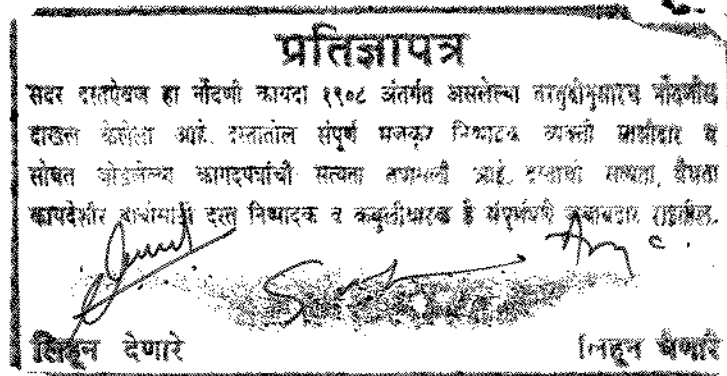 प्रतिज्ञापत्र
सदर दस्तऐवज हा नोंदणी कायदा १९०८ अंतर्गत असलेल्या तरतुदीनुसारच नोंदणीस
दाखल केलेला आहे. दस्तातील संपूर्ण मजकुर निष्पादक व्यक्ती साक्षीदार व
सोबत जोडलेल्या कागदपत्रांची सत्यता तपासली आहे. दस्ताची सत्यता, वैधता
कायदेशीर बाबींसाठी दस्त निष्पादक व कबुलीधारक हे संपूर्णपणे जबाबदार राहतील.
लिहून देणारे लिहून घेणारे